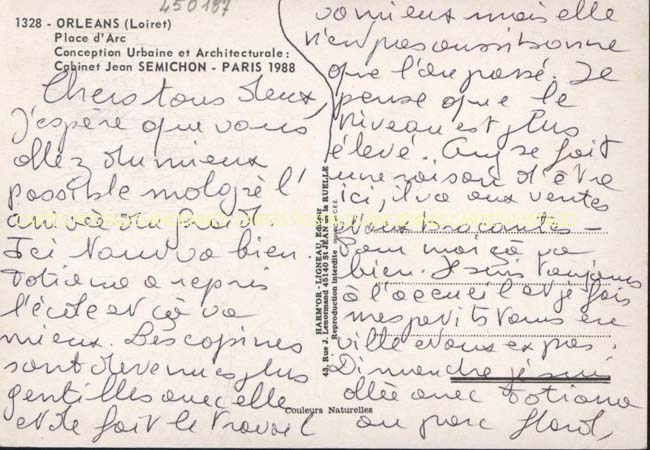 450187
1328 - ORLEANS (Loiret)
Place d'Arc
Conception Urbaine et Architecturale :
Cabinet Jean SEMICHON - PARIS 1988
Chers tous deux,
j'espère que vous
allez du mieux
possible malgrè l'
arrivée du froid
Ici tout va bien.
Totiana a repris
l'école et ça va
mieux. Les copines
sont devenues plus
gentilles avec elle
et le fait le travail
va mieux mais elle
n'en pas aussi bonne
que l'an passé. Je
pense que le
niveau est plus
élevé. Guy se fait
une raison d'être
ici, il va aux ventes
aux brocantes -
Pour moi ça va
bien. Je suis toujours
à l'accueil et je fais
mes petits tours en
ville et aux expos.
Dimanche je suis
allée avec Totiana
au parc floral,
HARM'OR - LIGNEAU, Editeur
43, Rue J. Lenormand 45140 St JEAN de la RUELLE
Reproduction interdite
Couleurs Naturelles